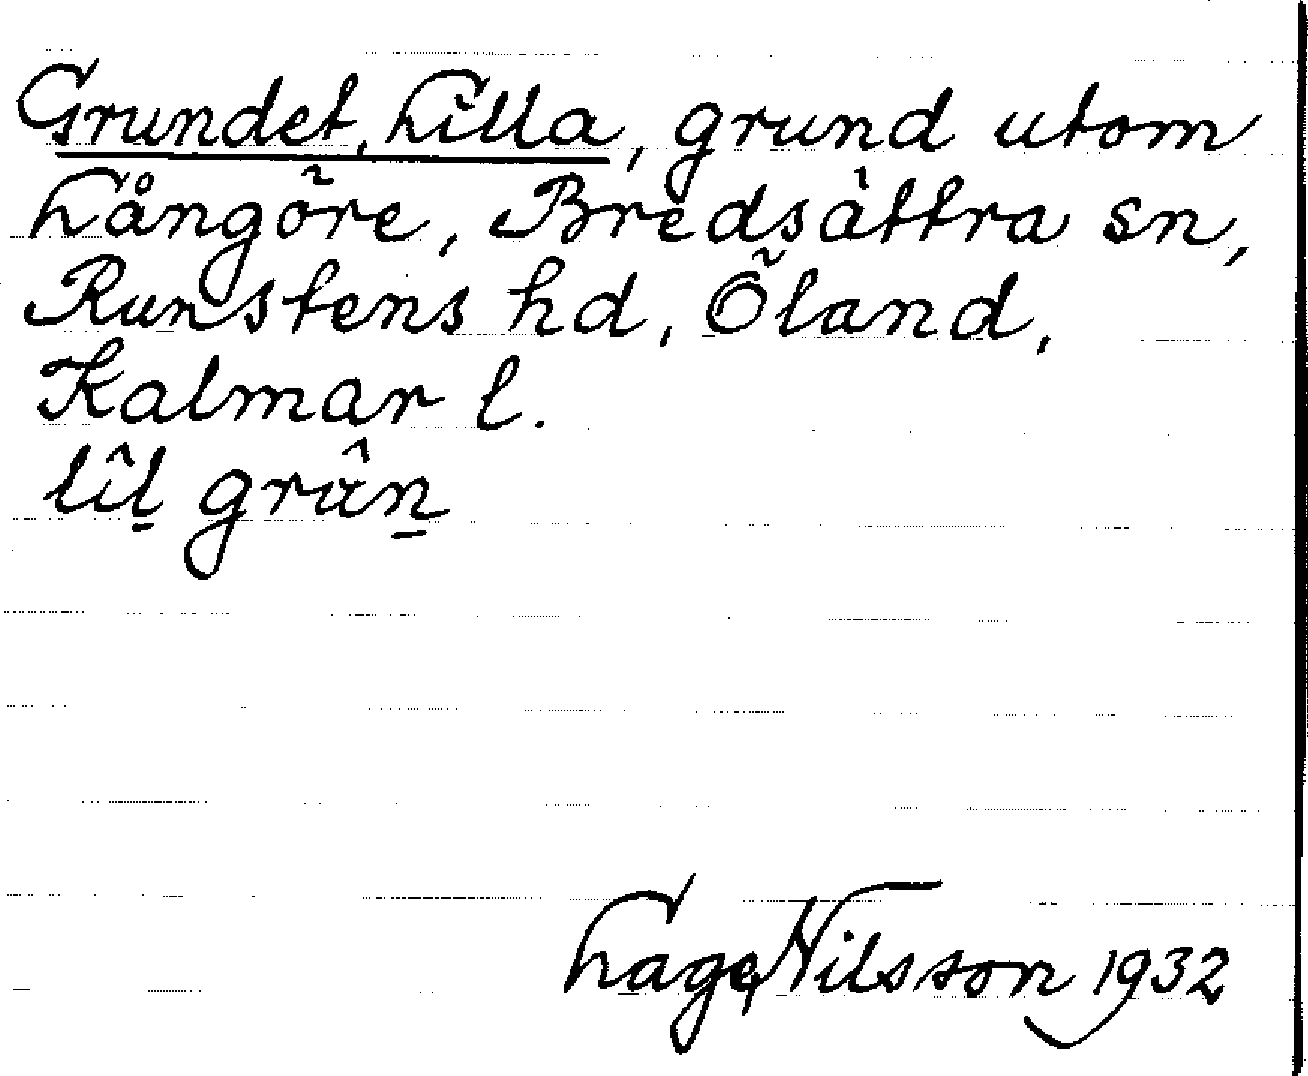 Grundet, Lilla, grund utom
Långöre, Bredsättra sn,
Runstens hd, Öland,
Kalmar l.
lîl̲ grân̲
Lage Nilsson 1932